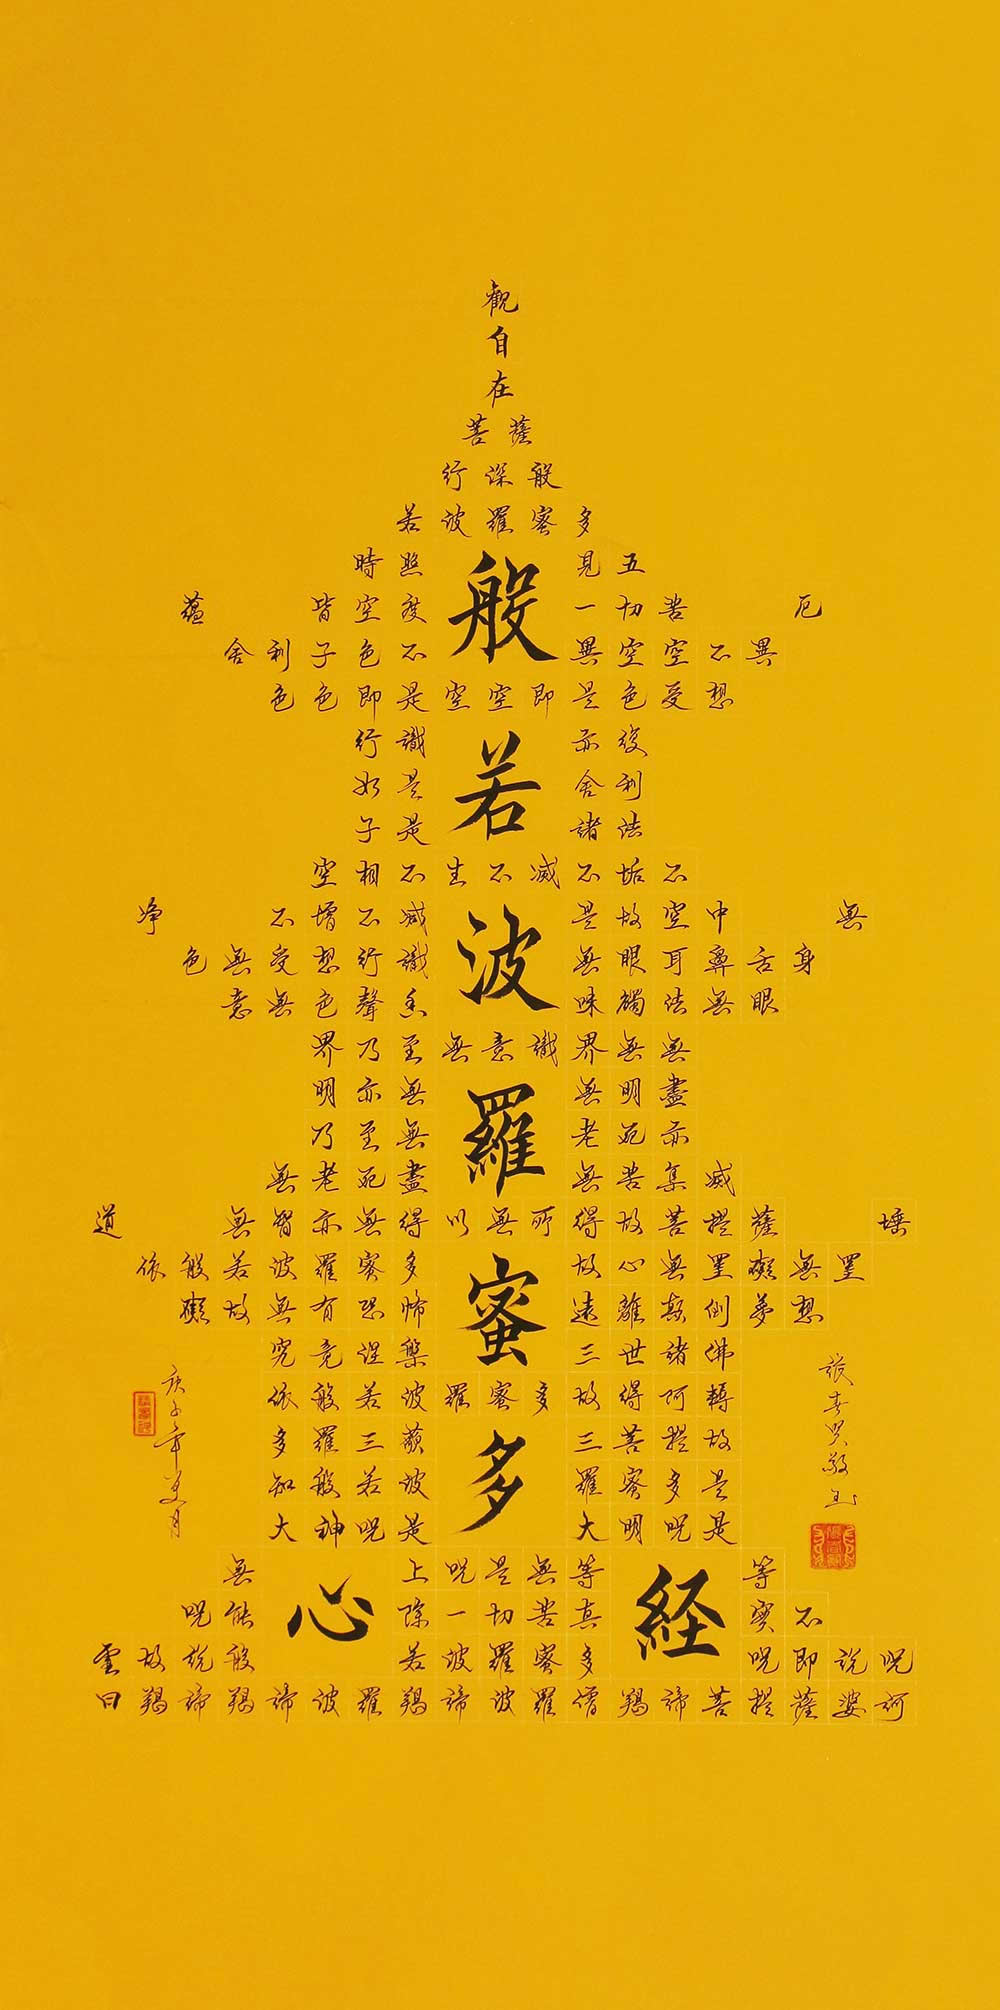 觀
自
在
菩薩
行深般
若波羅蜜多
時照見五
蘊皆空度一切苦厄
舍利子色不異空空不異
色色即是空空即是色受想
行識亦復
如是舍利
子是諸法
空相不生不滅不垢不
净不增不減是故空中無
色無受想行識無眼耳鼻舌身
意無色聲香味觸法無眼
界乃至無意識界無無
明亦無無明盡
乃至無老死亦
無老死盡無苦集滅
道無智亦無得以無所得故菩提薩埵
依般若波羅蜜多故心無罣礙無罣
礙故無有恐怖遠離顛倒夢想
究竟涅槃三世諸佛
依般若波羅蜜多故得阿耨
多羅三藐三菩提故
知般若波羅蜜多是
大神呪是大明呪是
無上呪是無等等
呪能除一切苦真實不
虛故說般若波羅蜜多呪即說呪
曰羯諦羯諦波羅羯諦波羅僧羯諦菩提薩婆訶
般若波羅蜜多
心経
張敬書
庚子年月